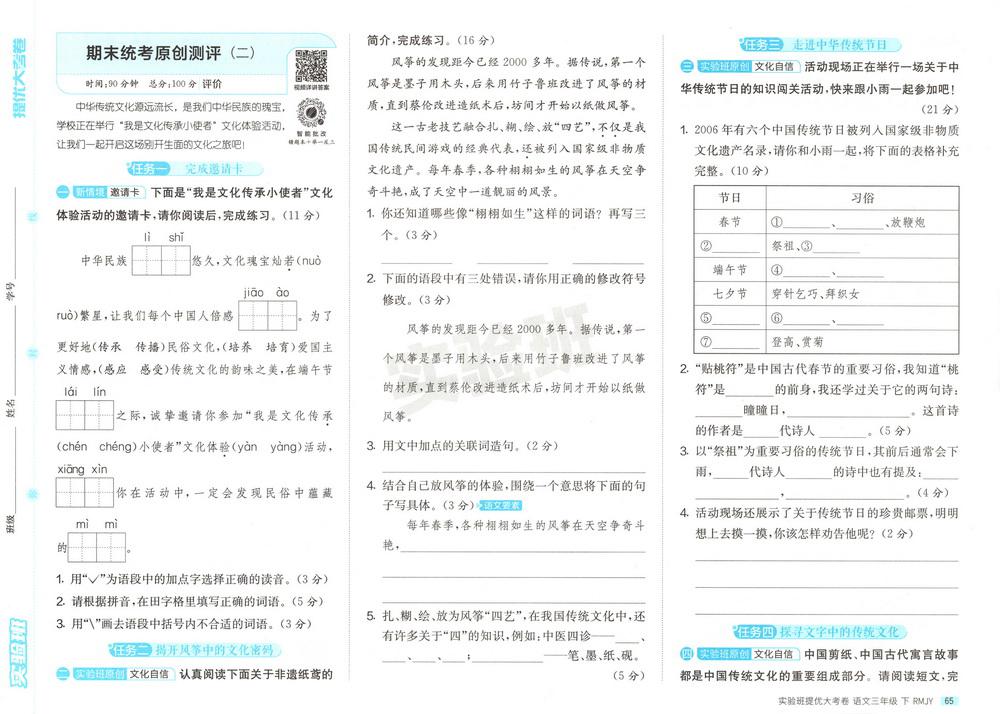 提优大考卷
班级
姓名
学号
线
封
密
实验班
期末统考原创测评（二）
时间:90 分钟　总分:100 分 评价
视频详讲答案
智能批改
错题本+举一反三
中华传统文化源远流长，是我们中华民族的瑰宝，
学校正在举行“我是文化传承小使者”文化体验活动，
让我们一起开启这场别开生面的文化之旅吧！
任务一　完成邀请卡
一 新情境 邀请卡 下面是“我是文化传承小使者”文化
体验活动的邀请卡，请你阅读后，完成练习。（11 分）
lì shǐ
中华民族 悠久，文化瑰宝灿若(nuò
jiāo ào
ruò)繁星，让我们每个中国人倍感 。为了
更好地(传承　传播)民俗文化，(培养　培育)爱国主
义情感，(感应　感受)传统文化的韵味之美，在端午节
lái lín
之际，诚挚邀请你参加“我是文化传承
(chén　chéng)小使者”文化体验(yàn　yàng)活动，
xiāng xìn
你在活动中，一定会发现民俗中蕴藏
mì mì
的 。
1. 用“✓”为语段中的加点字选择正确的读音。（3 分）
2. 请根据拼音，在田字格里填写正确的词语。（5 分）
3. 用“\”画去语段中括号内不合适的词语。（3 分）
任务二　揭开风筝中的文化密码
二 实验班原创 文化自信 认真阅读下面关于非遗纸鸢的
简介，完成练习。（16 分）
风筝的发现距今已经 2000 多年。据传说，第一个
风筝是墨子用木头，后来用竹子鲁班改进了风筝的材
质，直到蔡伦改进造纸术后，坊间才开始以纸做风筝。
这一古老技艺融合扎、糊、绘、放“四艺”，不仅是我
国传统民间游戏的经典代表，还被列入国家级非物质
文化遗产。每年春季，各种栩栩如生的风筝在天空争
奇斗艳，成了天空中一道靓丽的风景。
1. 你还知道哪些像“栩栩如生”这样的词语？再写三
个。（3 分）
2. 下面的语段中有三处错误，请你用正确的修改符号
修改。（3 分）
风筝的发现距今已经 2000 多年。据传说，第一
个风筝是墨子用木头，后来用竹子鲁班改进了风筝
的材质，直到蔡伦改进造纸术后，坊间才开始以纸做
风筝。
3. 用文中加点的关联词造句。（2 分）
4. 结合自己放风筝的体验，围绕一个意思将下面的句
子写具体。（3 分） 语文要素
每年春季，各种栩栩如生的风筝在天空争奇斗
艳，
5. 扎、糊、绘、放为风筝“四艺”，在我国传统文化中，还
有许多关于“四”的知识，例如：中医四诊——____、
____、____、____；________——笔、墨、纸、砚。
（5 分）
实验班
任务三　走进中华传统节日
三 实验班原创 文化自信 活动现场正在举行一场关于中
华传统节日的知识闯关活动，快来跟小雨一起参加吧！
（21 分）
1. 2006 年有六个中国传统节日被列入国家级非物质
文化遗产名录，请你和小雨一起，将下面的表格补充
完整。（10 分）
节日 习俗
春节 ①________、________、放鞭炮
②________ 祭祖、③________
端午节 ④________、________
七夕节 穿针乞巧、拜织女
⑤________ ⑥________、________
⑦________ 登高、赏菊
2. “贴桃符”是中国古代春节的重要习俗，我知道“桃
符”是________的前身，我还学过关于它的两句诗：
________曈曈日，________________。这首诗
的作者是______代诗人 ________。（5 分）
3. 以“祭祖”为重要习俗的传统节日，其前后通常会下
雨，______代诗人________的诗中也有提及：
____________，________________。（4 分）
4. 活动现场还展示了关于传统节日的珍贵邮票，明明
想上去摸一摸，你该怎样劝告他呢？（2 分）
任务四　探寻文字中的传统文化
四 实验班原创 文化自信 中国剪纸、中国古代寓言故事
都是中国传统文化的重要组成部分。请阅读短文，完
实验班提优大考卷 语文三年级 下 RMJY 65